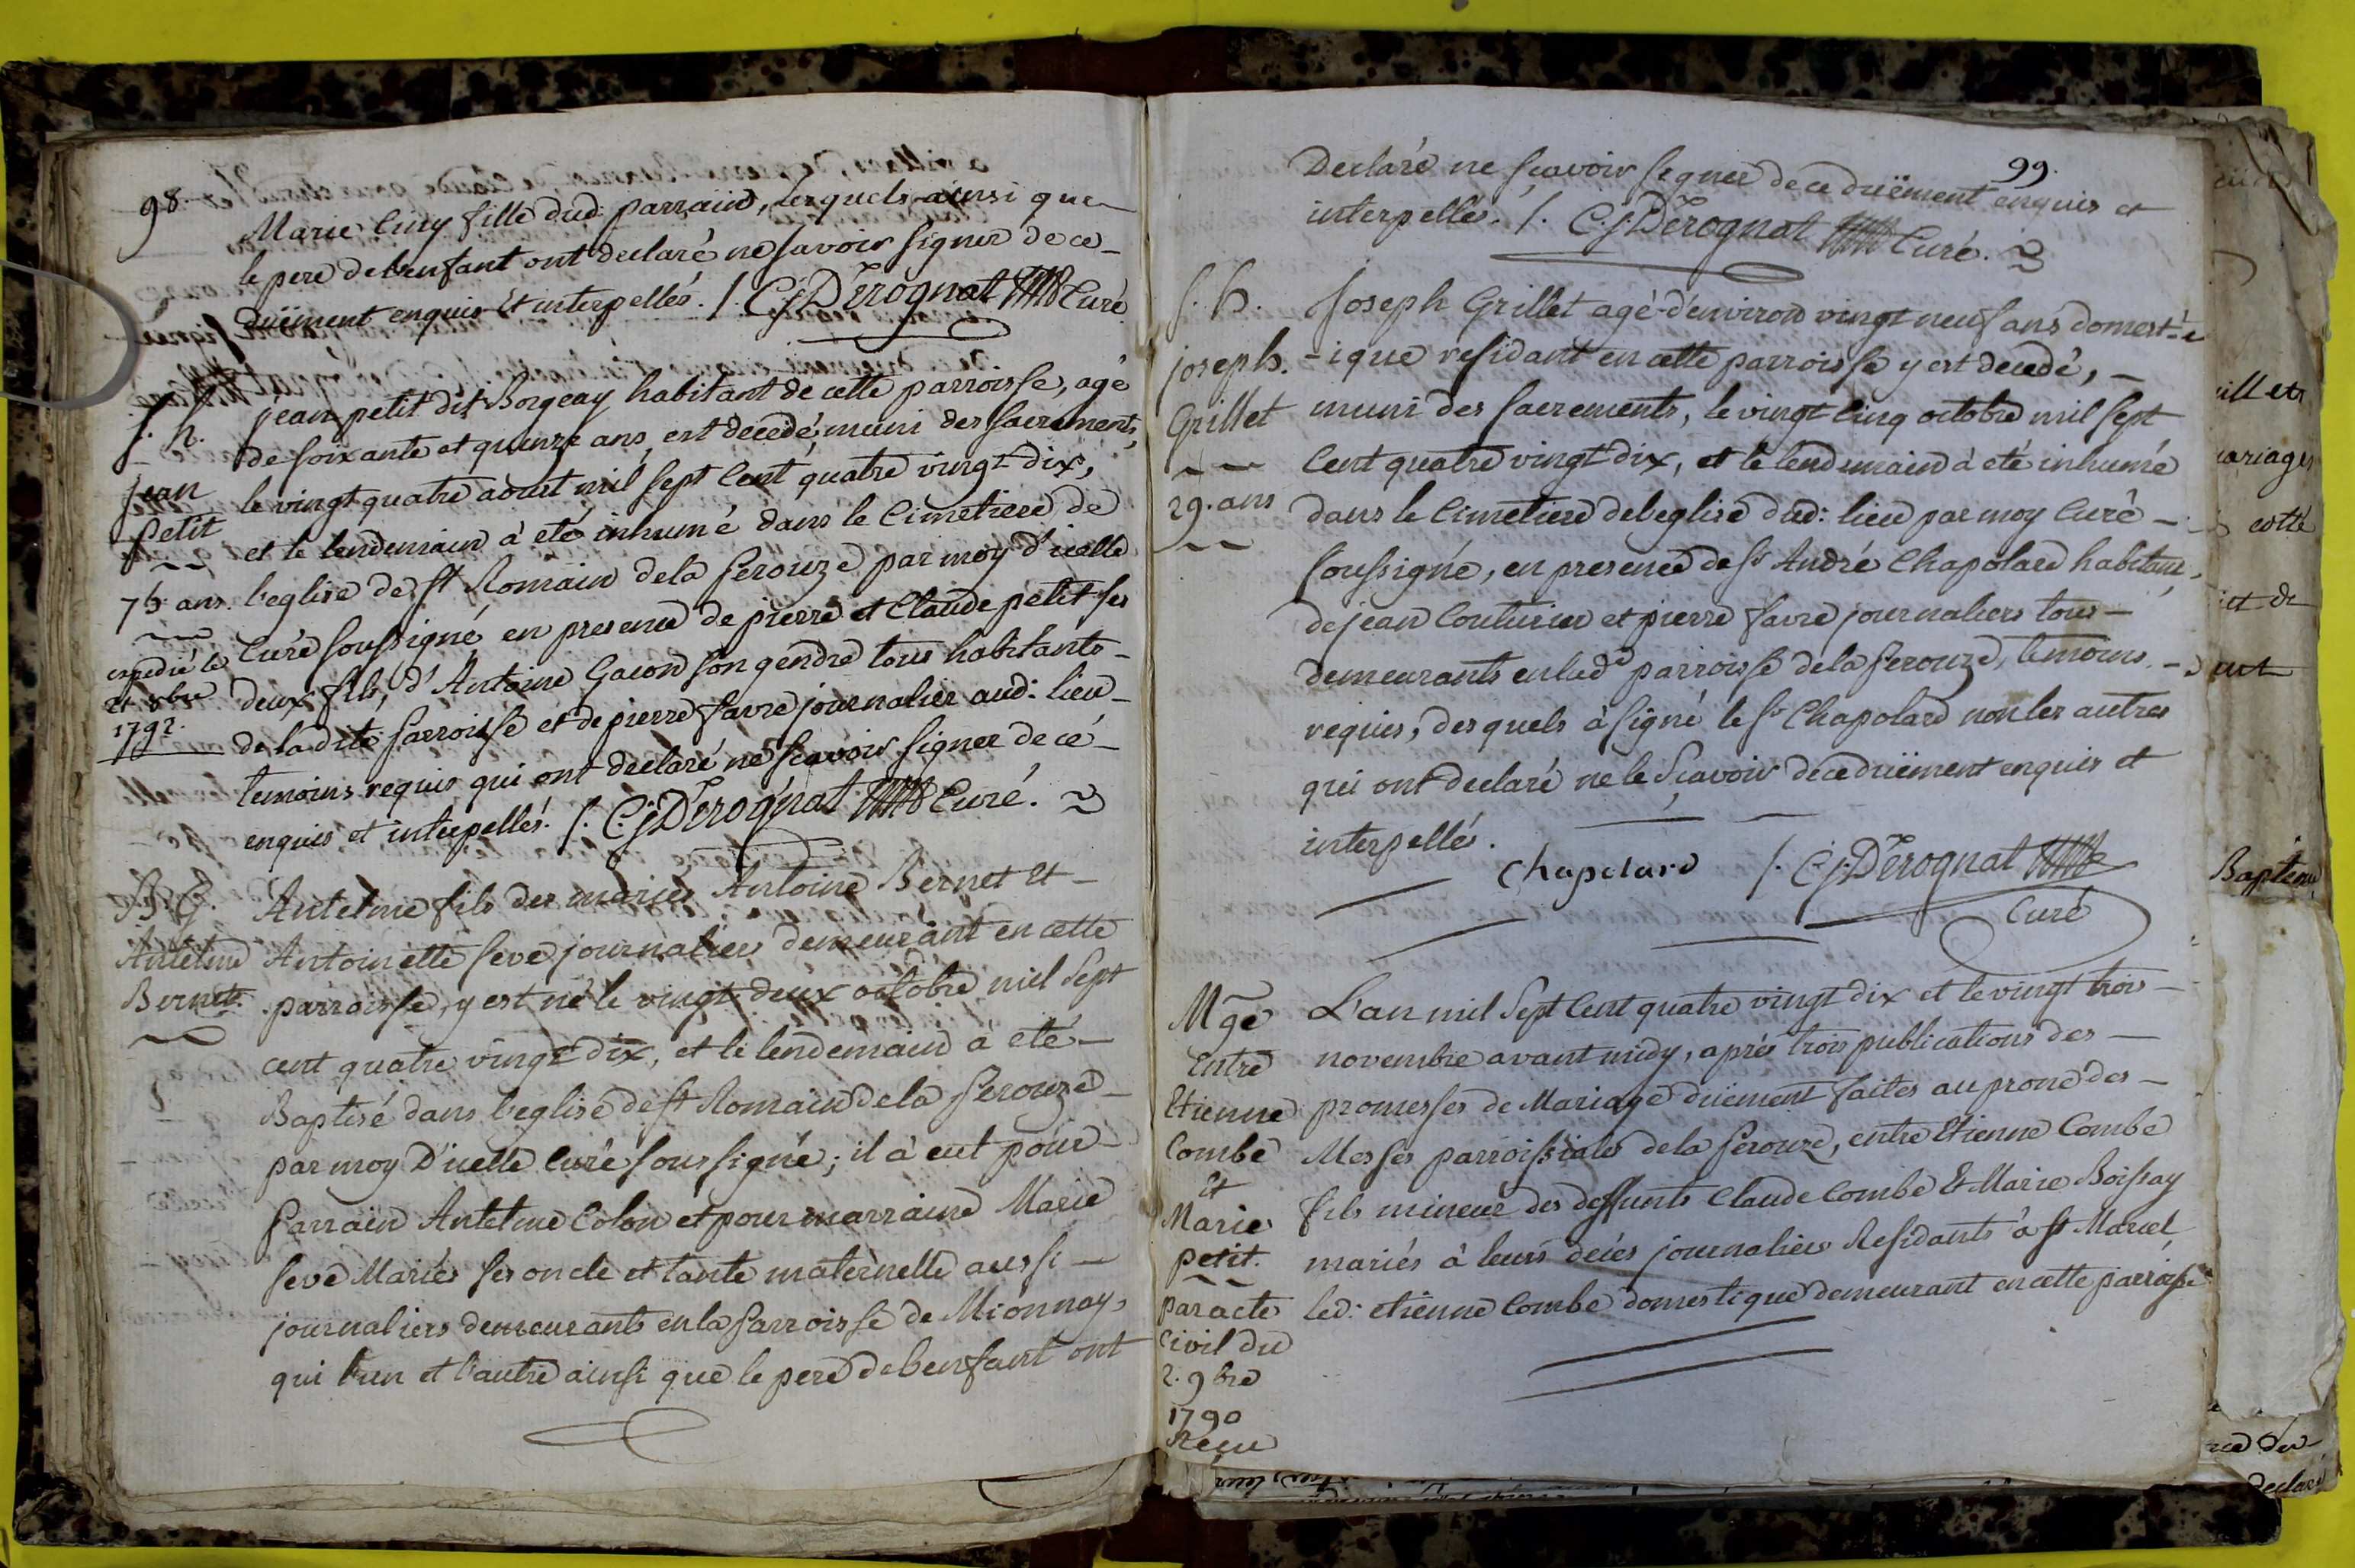 98
Marie Cury fille dud: parrain, lesquels ainsi que
le pere de l'enfant ont declaré ne savoir signer de ce
düement enquis et interpellés. /. C.j. Derognat Curé
s. h.
jean
petit
75 ans.
expedié le
21 8bre
1792.
jean petit dit Borgeay habitant de cette parroisse, agé
de soixante et quinze ans, est decedé, muni des sacrements,
le vingt quatre aoust mil sept cent quatre vingt dix,
et le lendemain à eté inhumé dans le Cimetiere de
l'eglise de st Romain de la perouze par moy d'icelle
Curé soussigné, en presence de pierre et Claude petit ses
deux fils, d'Antoine Gacon son gendre tous habitants
de ladite parroisse et de pierre favre journalier aud: lieu
temoins requis qui ont declaré ne scavoir signer de ce
enquis et interpellés. /. C.j. Derognat Curé.
B. G.
Antelme
Bernet
Antelme fils des mariés Antoine Bernet et
Antoinette seve journaliers demeurant en cette
parroisse, y est né le vingt deux octobre mil sept
cent quatre vingt dix, et le lendemain à eté
Baptisé dans l'eglise de st Romain de la perouze
par moy D'icelle Curé soussigné; il à eut pour
parrain Antelme Colon et pour marraine Marie
seve Mariés ses oncle et tante maternelle aussi
journaliers demeurants en la parroisse de Mionnay,
qui l'un et l'autre ainsi que le pere de l'enfant ont
99.
declaré ne scavoir signer de ce düement enquis et
interpellés. /. C.j. Derognat Curé.
s. h.
joseph.
Grillet
29. ans
Joseph Grillet agé d'environ vingt neuf ans domest-
-ique residant en cette parroisse y est decedé,
muni des sacrements, le vingt cinq octobre mil sept
Cent quatre vingt dix, et le lendemain à eté inhumé
dans le Cimetiere de l'eglise dud: lieu par moy Curé
soussigné, en presence de sr André Chapolard habitant,
de jean Couturier et pierre favre journaliers tous
demeurants en lade parroisse de la perouze, temoins
requis, desquels à signé le sr Chapolard non les autres
qui ont declaré ne le Scavoir de ce düement enquis et
interpellés.
Chapolard /. C.j. Derognat
Curé
Mge
Entre
Etienne
Combe
et
Marie
petit.
par acte
Civil du
2. 9bre
1790
Reçu
L'an mil sept Cent quatre vingt dix et le vingt trois
novembre avant midy, aprés trois publications des
promesses de Mariage düement faites au prone des
Messes parroissiales de la perouze, entre Etienne Combe
fils mineur des deffunts Claude Combe Et Marie Boissay
mariés à leurs decés journaliers Residants à st Marcel
led: etienne Combe domestique demeurant en cette parroisse